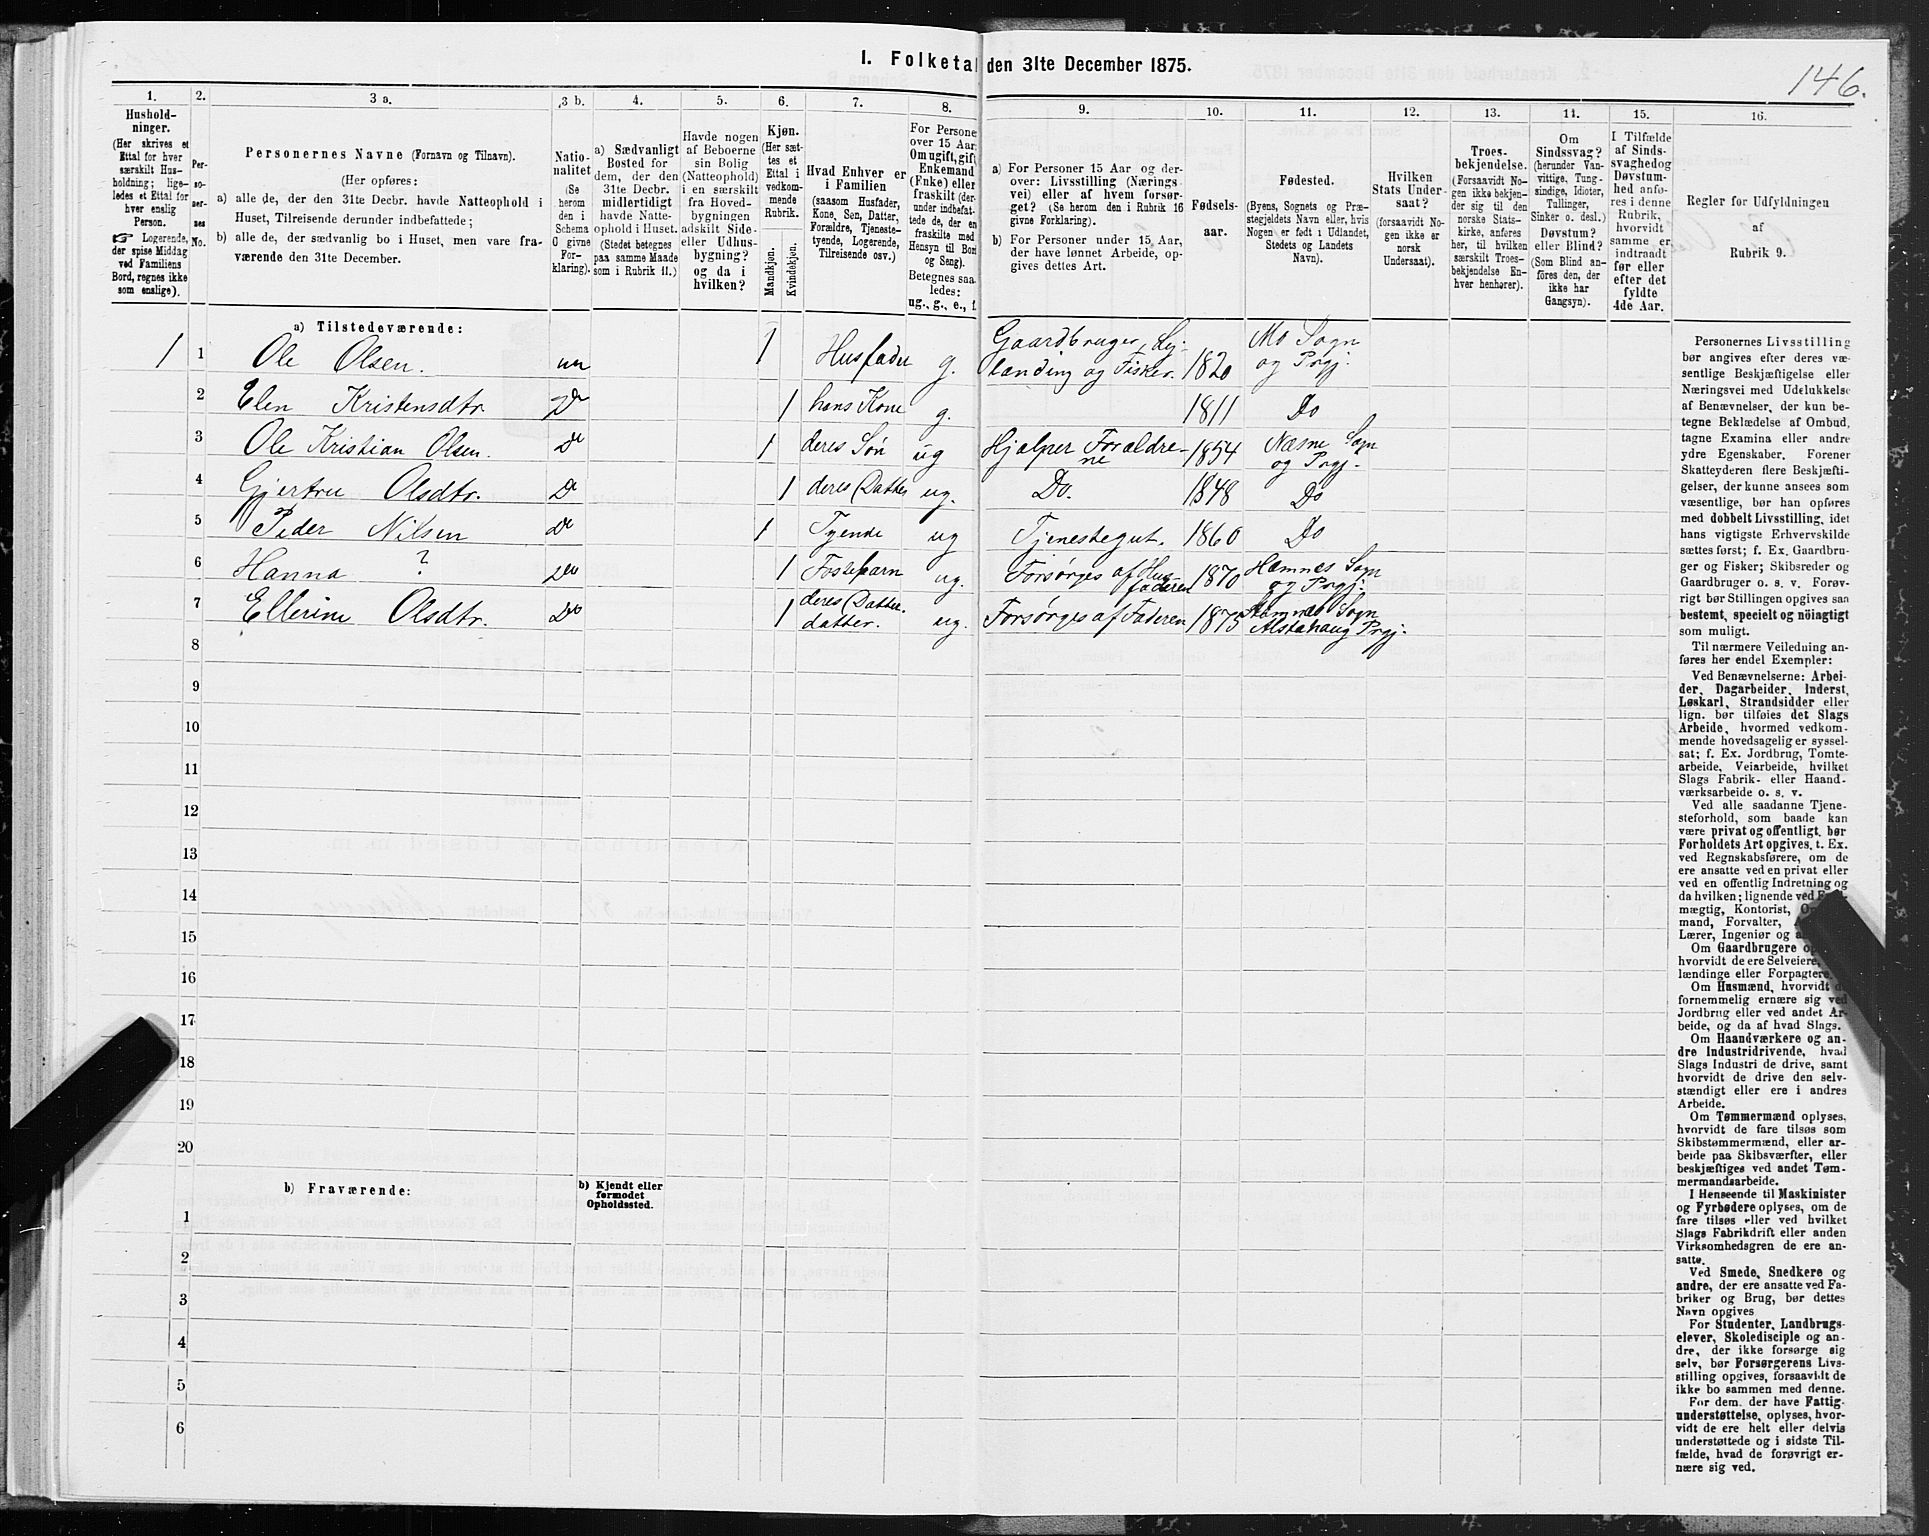 I. Folketal den 31te December 1875.
146.
1.
Hushold-
ninger.
(Her skrives et
Ettal for hver
særskilt Hus-
holdning; lige-
ledes et Ettal for
hver enslig
Person.
☞ Logerende,
der spise Middag
ved Familiens
Bord, regnes ikke
som enslige).
2.
Per-
so-
ner-
nes
No.
3 a.
Personernes Navne (Fornavn og Tilnavn).
(Her opføres:
a) alle de, der den 31te Decbr. havde Natteophold i
Huset, Tilreisende derunder indbefattede;
b) alle de, der sædvanlig bo i Huset, men vare fra-
værende den 31te December.
3 b.
Natio-
nalitet
(Se
herom
den i
Schema
O givne
For-
klaring).
4.
a) Sædvanligt
Bosted for
dem, der den
31te Decbr.
midlertidigt
havde Natte-
ophold i Huset.
(Stedet betegnes
paa samme Maade
som i Rubrik 11.)
5.
Havde nogen
af Beboerne
sin Bolig
(Natteophold)
i en særskilt
fra Hoved-
bygningen
adskilt Side-
eller Udhus-
bygning?
og da i
hvilken?
6.
Kjøn.
(Her sæt-
tes et
Ettal i
vedkom-
mende
Rubrik.
Mandkjøn.
Kvindekjøn.
7.
Hvad Enhver er
i Familien
(saasom Husfader,
Kone, Søn, Datter,
Forældre, Tjeneste-
tyende, Logerende,
Tilreisende osv.)
8.
For Personer
over 15 Aar:
Om ugift, gift,
Enkemand
(Enke) eller
fraskilt (der-
under indbefat-
tede de, der en
fraskilte med
Hensyn til Bord
og Seng).
Betegnes saa-
ledes:
ug., g., e., f.
9.
a) For Personer 15 Aar og der-
over: Livsstilling (Nærings-
vei) eller af hvem forsør-
get? (Se herom den i Rubrik 16
givne Forklaring).
b) For Personer under 15 Aar,
der have lønnet Arbeide, op-
gives dettes Art.
10.
Fødsels-
aar.
11.
Fødested.
(Byens, Sognets og Præ-
stegjeldets Navn eller, hvis
Nogen er født i Udlandet,
Stedets og Landets
Navn).
12.
Hvilken
Stats Under-
saat?
(forsaavidt No-
gen ikke er
norsk
Undersaat).
13.
Troes-
bekjendelse.
(Forsaavidt No-
gen ikke bekjen-
der sig til den
norske Stats-
kirke, anføres
her, til hvilken
særskilt Troes-
bekjendelse En-
hver henhører).
14.
Om
Sindssvag?
(herunder Van-
vittige, Tung-
sindige, Idioter,
Tullinger,
Sinker o. desl.)
Døvstum?
eller Blind?
(Som Blind an-
føres den, der
ikke har
Gangsyn).
15.
I Tilfælde
af Sinds-
svaghed og
Døvstum-
hed anfø-
res i denne
Rubrik,
hvorvidt
samme er
indtraadt
før eller
efter det
fyldte
4de Aar.
16.
Regler for Udfyldningen
af
Rubrik 9.
a) Tilstedeværende:
1 1 Ole Olsen. nn 1 Husfader g. Gaardbruger, Lej-
lænding og Fisker. 1820 Mo Sogn
og Prgj.
2 Elen Kristensdtr Do 1 hans Kone g. 1811 Do
3 Ole Kristian Olsen. Do 1 deres Søn ug Hjælper Forældre-
ne 1854 Næsne Sogn
og Prgj.
4 Gjertru Olsdtr. Do 1 deres Datter ug. Do. 1848 Do
5 Peder Nilsen Do 1 Tyende ug Tjenestegut. 1860 Do
6 Hanna ? Do 1 Fosterbarn ug. Forsørges af Hus-
faderen 1870 Hemnes Sogn
og Prgj.
7 Ellerine Olsdtr. Do 1 deres Datter-
datter. ug. Forsørges af Faderen 1875 Sogn
Alstahaug Prgj.
8
9
10
11
12
13
14
15
16
17
18
19
20
b) Fraværende:
b) Kjendt eller
formodet
Opholdssted.
1
2
3
4
5
6
Personernes Livsstilling
bør angives efter deres væ-
sentlige Beskjæftigelse eller
Næringsvei med Udelukkelse
af Benævnelser, der kun be-
tegne Beklædelse af Ombud,
tagne Examina eller andre
ydre Egenskaber. Forener
Skatteyderen flere Beskjæfti-
gelser, der kunne ansees som
væsentlige, bør han opføres
med dobbelt Livsstilling, idet
hans vigtigste Erhvervskilde
sættes først; f. Ex. Gaardbru-
ger og Fisker; Skibsreder og
Gaardbruger o. s. v. Forøv-
rigt bør Stillingen opgives saa
bestemt, specielt og nöiagtigt
som muligt.
Til nærmere Veiledning an-
føres her endel Exempler:
Ved Benævnelserne: Arbei-
der, Dagarbeider, Inderst,
Løskarl, Strandsidder eller
lign. bør tilføies det Slags
Arbeide, hvormed vedkom-
mende hovedsagelig er syssel-
sat; f. Ex. Jordbrug, Tomte-
arbeide, Veiarbeide, hvilket
Slags Fabrik- eller Haand-
værksarbeide o. s. v.
Ved alle saadanne Tjene-
steforhold, som baade kan
være privat og offentligt, bør
Forholdets Art opgives, t. Ex.
ved Regnskabsførere, om de
ere ansatte ved en privat eller
ved en offentlig Indretning og
da hvilken; lignende ved
mægtig, Kontorist,
mand, Forvalter,
Lærer, Ingeniør og
Om Gaardbrugere
hvorvidt de ere Selveiere,
lændinge eller Forpagtere.
Om Husmænd, hvorvidt de
fornemmelig ernære sig ved
Jordbrug eller ved andet Ar-
beide, og da af hvad Slags.
Om Haandværkere og an-
dre Industridrivende, hvad
Slags Industri de drive, samt
hvorvidt de drive den selv-
stændigt eller ere i andres
Arbeide.
Om Tømmermænd oplyses,
hvorvidt de fare tilsøs som
Skibstømmermænd, eller ar-
beide paa Skibsværfter, eller
beskjæftiges ved andet Tøm-
mermandsarbeide.
I Henseende til Maskinister
og Fyrbødere oplyses, om de
fare tilsøs eller ved hvilket
Slags Fabrikdrift eller anden
Virksomhedsgren de ere an-
satte.
Ved Smede, Snedkere og
andre, der ere ansatte ved Fa-
briker og Brug, bør dettes
Navn opgives
For Studenter, Landbrugs-
elever, Skoledisciple og an-
dre, der ikke forsørge sig
selv, bør Forsørgerens Livs-
stilling opgives, forsaavidt de
ikke bo sammen med denne.
For dem, der have Fattig-
understøttelse, oplyses, hvor-
vidt de ere helt eller delvis
understøttede og i sidste Til-
fælde, hvad de forøvrigt er-
nære sig ved.